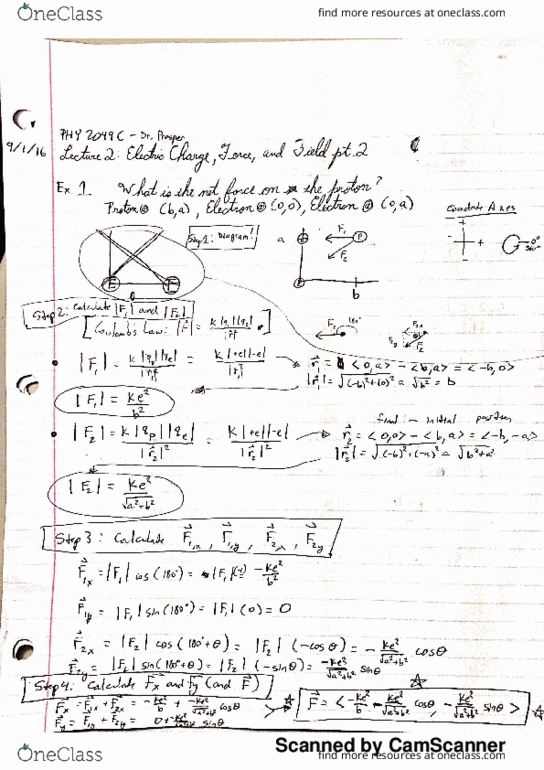 OneClass
find more resources at oneclass.com
PHY 2049C - Dr. Prosper
9/1/16
Lecture 2: Electric Charge, Force, and Field pt. 2
Ex 1. What is the net force on the proton?
Proton @ (b,a), Electron @ (0,0), Electron @ (0,a)
Coordinate Axes
Step 1: Diagram!
a
F₁
P
F₂
b
+
+
0°
360°
E
Step 2: Calculate |F₁| and |F₂|
[Coulomb's Law: |F| = k|q₁||q₂| / |r|²]
180°
|F₁| = k|qp||qe| / |r₁|² = k|+e||-e| / |r₁|²
r₁ = <0,a> - <b,a> = <-b,0>
|r₁| = √(-b)²+(0)² = √b² = b
|F₁| = ke² / b²
final - initial position
|F₂| = k|qp||qe| / |r₂|² = k|+e||-e| / |r₂|²
r₂ = <0,0> - <b,a> = <-b,-a>
|r₂| = √(-b)²+(-a)² = √b²+a²
|F₂| = ke² / √a²+b²
Step 3: Calculate F₁,x, F₁,y, F₂,x, F₂,y
F₁x = |F₁| cos(180°) = |F₁|(-1) = -ke² / b²
F₁y = |F₁| sin(180°) = |F₁|(0) = 0
F₂x = |F₂| cos(180°+θ) = |F₂|(-cosθ) = -ke² / √a²+b² cosθ
F₂y = |F₂| sin(180°+θ) = |F₂|(-sinθ) = -ke² / √a²+b² sinθ
Step 4: Calculate Fx and Fy (and F)
Fx = F₁x + F₂x = -ke² / b + -ke² / √a²+b² cosθ
F = <-ke² / b - ke² / √a²+b² cosθ, -ke² / √a²+b² sinθ>
Fy = F₁y + F₂y = 0 + -ke² / √a²+b² sinθ
Scanned by CamScanner
OneClass
find more resources at oneclass.com